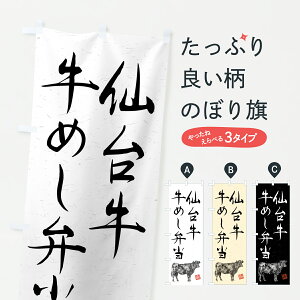 仙台牛
牛めし弁当
たっぷり
良い柄
のぼり旗
やったね
えらべる
3タイプ
A
B
C
仙台牛
牛めし弁当
仙台牛
牛めし弁当
仙台牛
牛めし弁当